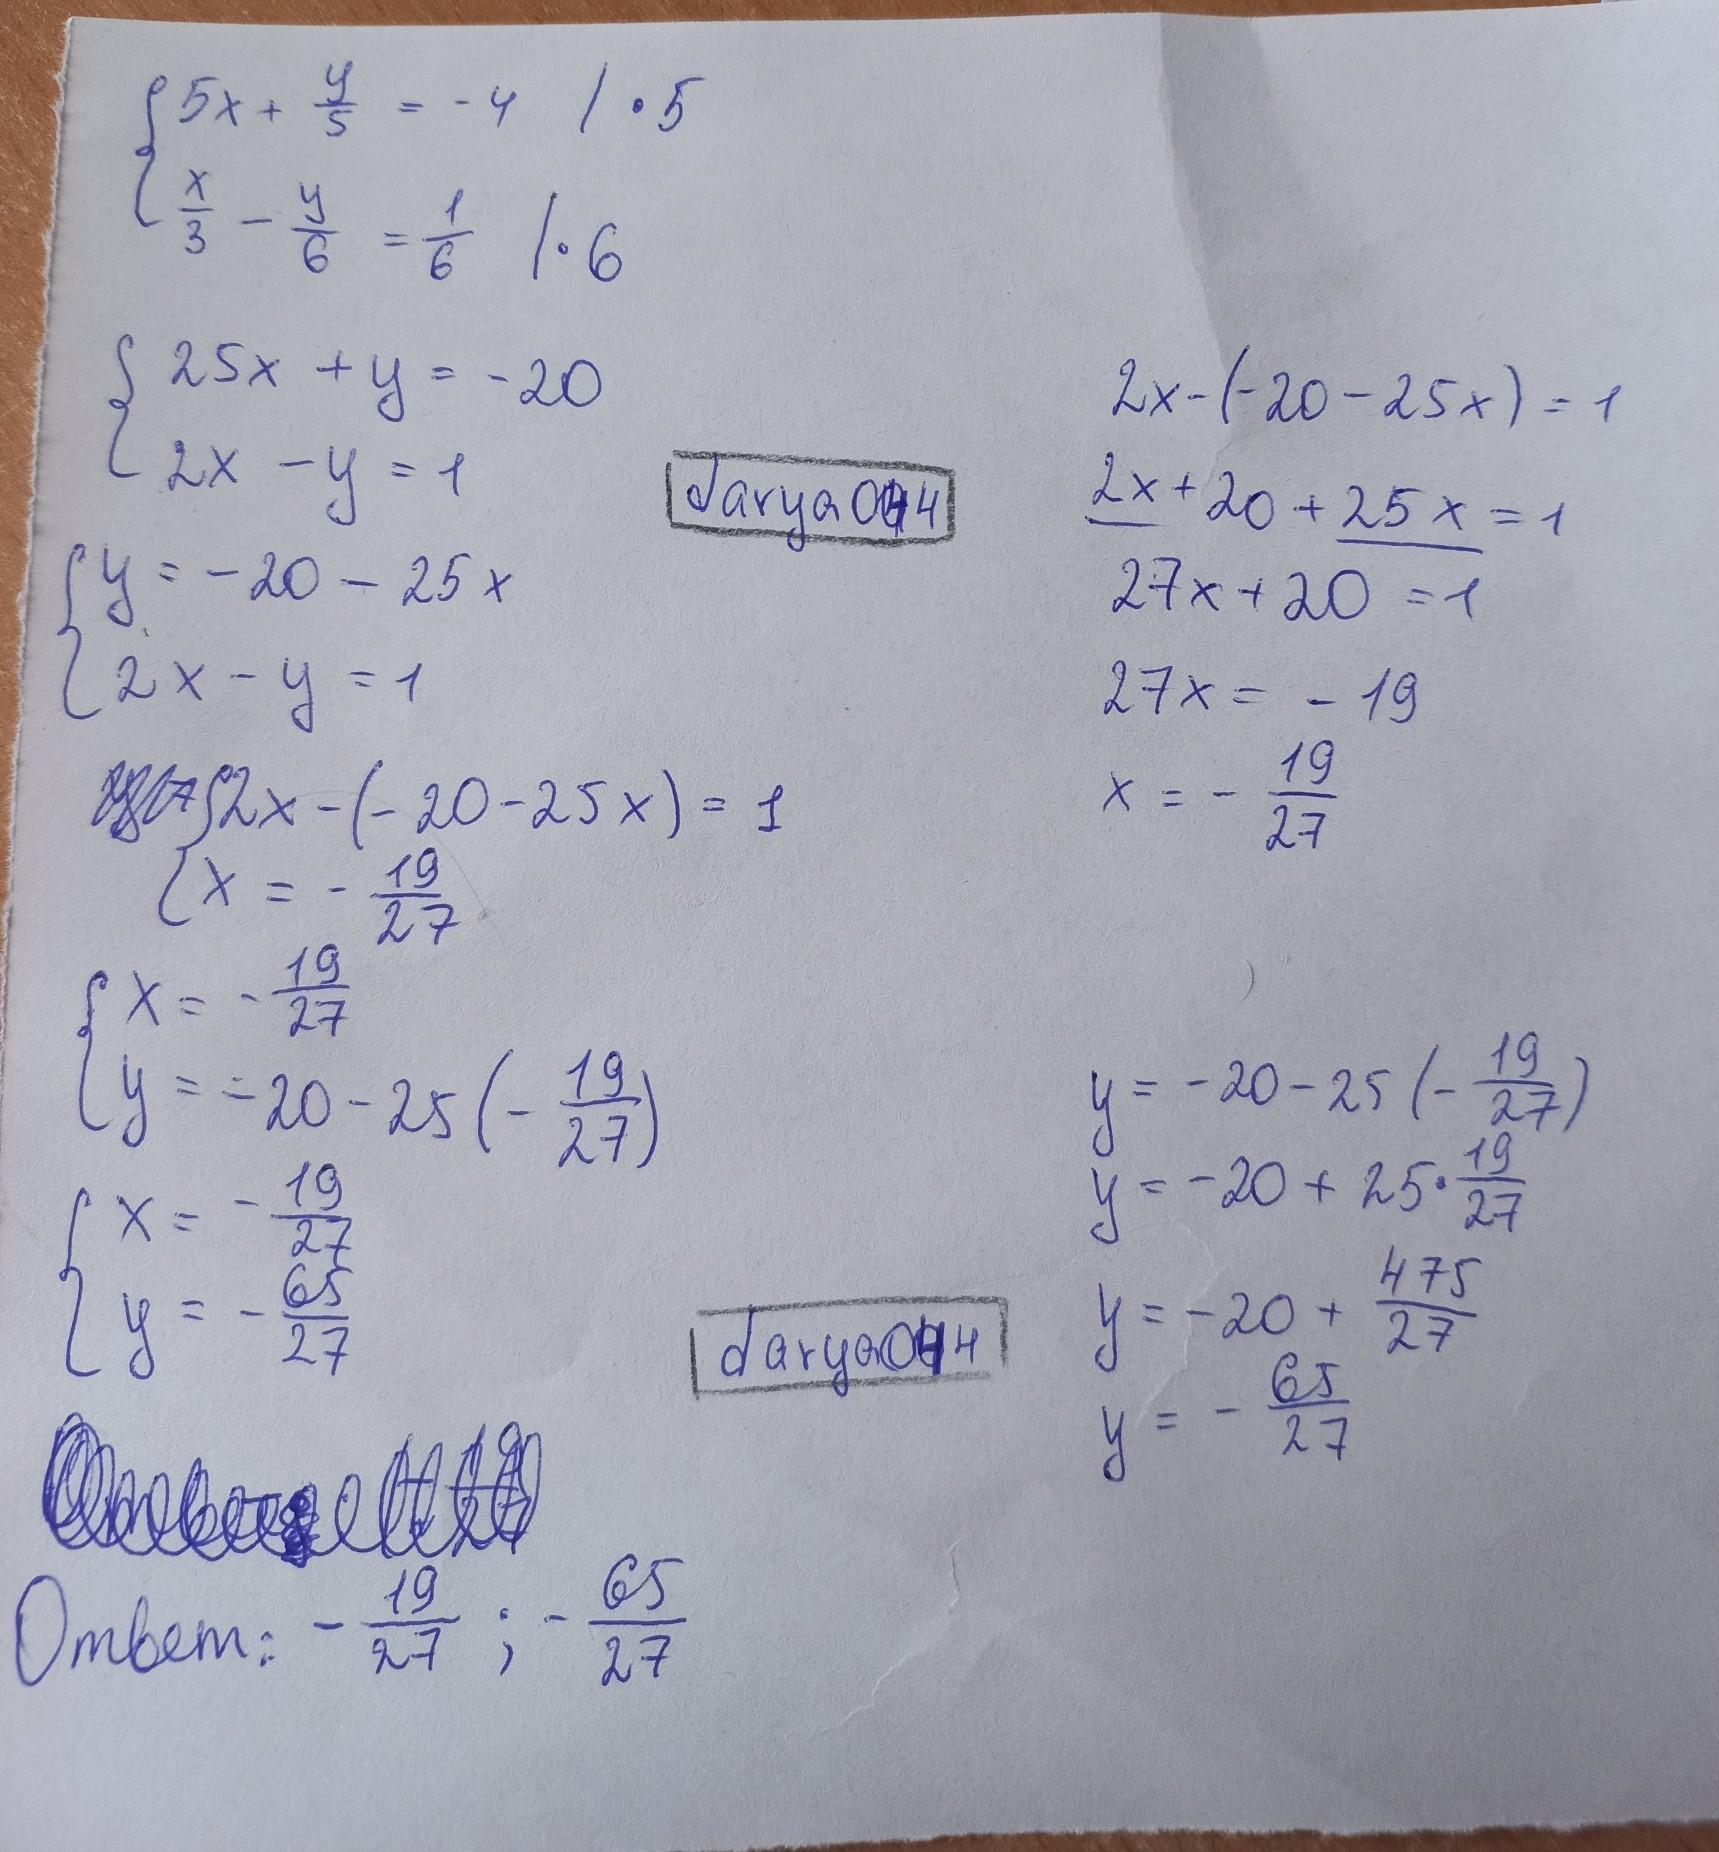 { 5x + y/5 = -4 / · 5
x/3 - y/6 = 1/6 / · 6
{ 25x + y = -20
2x - y = 1
{ y = -20 - 25x
2x - y = 1
{ 2x - (-20 - 25x) = 1
x = - 19/27
{ x = - 19/27
y = -20 - 25 (- 19/27)
{ x = - 19/27
y = - 65/27
Ответ: - 19/27 ; - 65/27
darya044
2x - (-20 - 25x) = 1
2x + 20 + 25x = 1
27x + 20 = 1
27x = - 19
x = - 19/27
y = -20 - 25 (- 19/27)
y = -20 + 25 · 19/27
y = -20 + 475/27
y = - 65/27
darya044